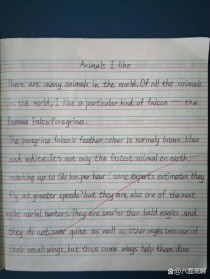 Animals I like
There are many animals in the world. Of all the animals
in the world, I like a particular kind of falcon — the
Falco Peregrinus.
The peregrine falcon's feather colour is normaly brown, blue
and white. It's not only the fastest animal on earth,
up to km per hour (some experts estimates they
fly at greater speeds) but they are also one of the most
agile aerial hunters. They are smaller than bald eagles, and
they do not soar quite as well as other eagles because of
their small wings, but those same wings help them dive
@八面观解